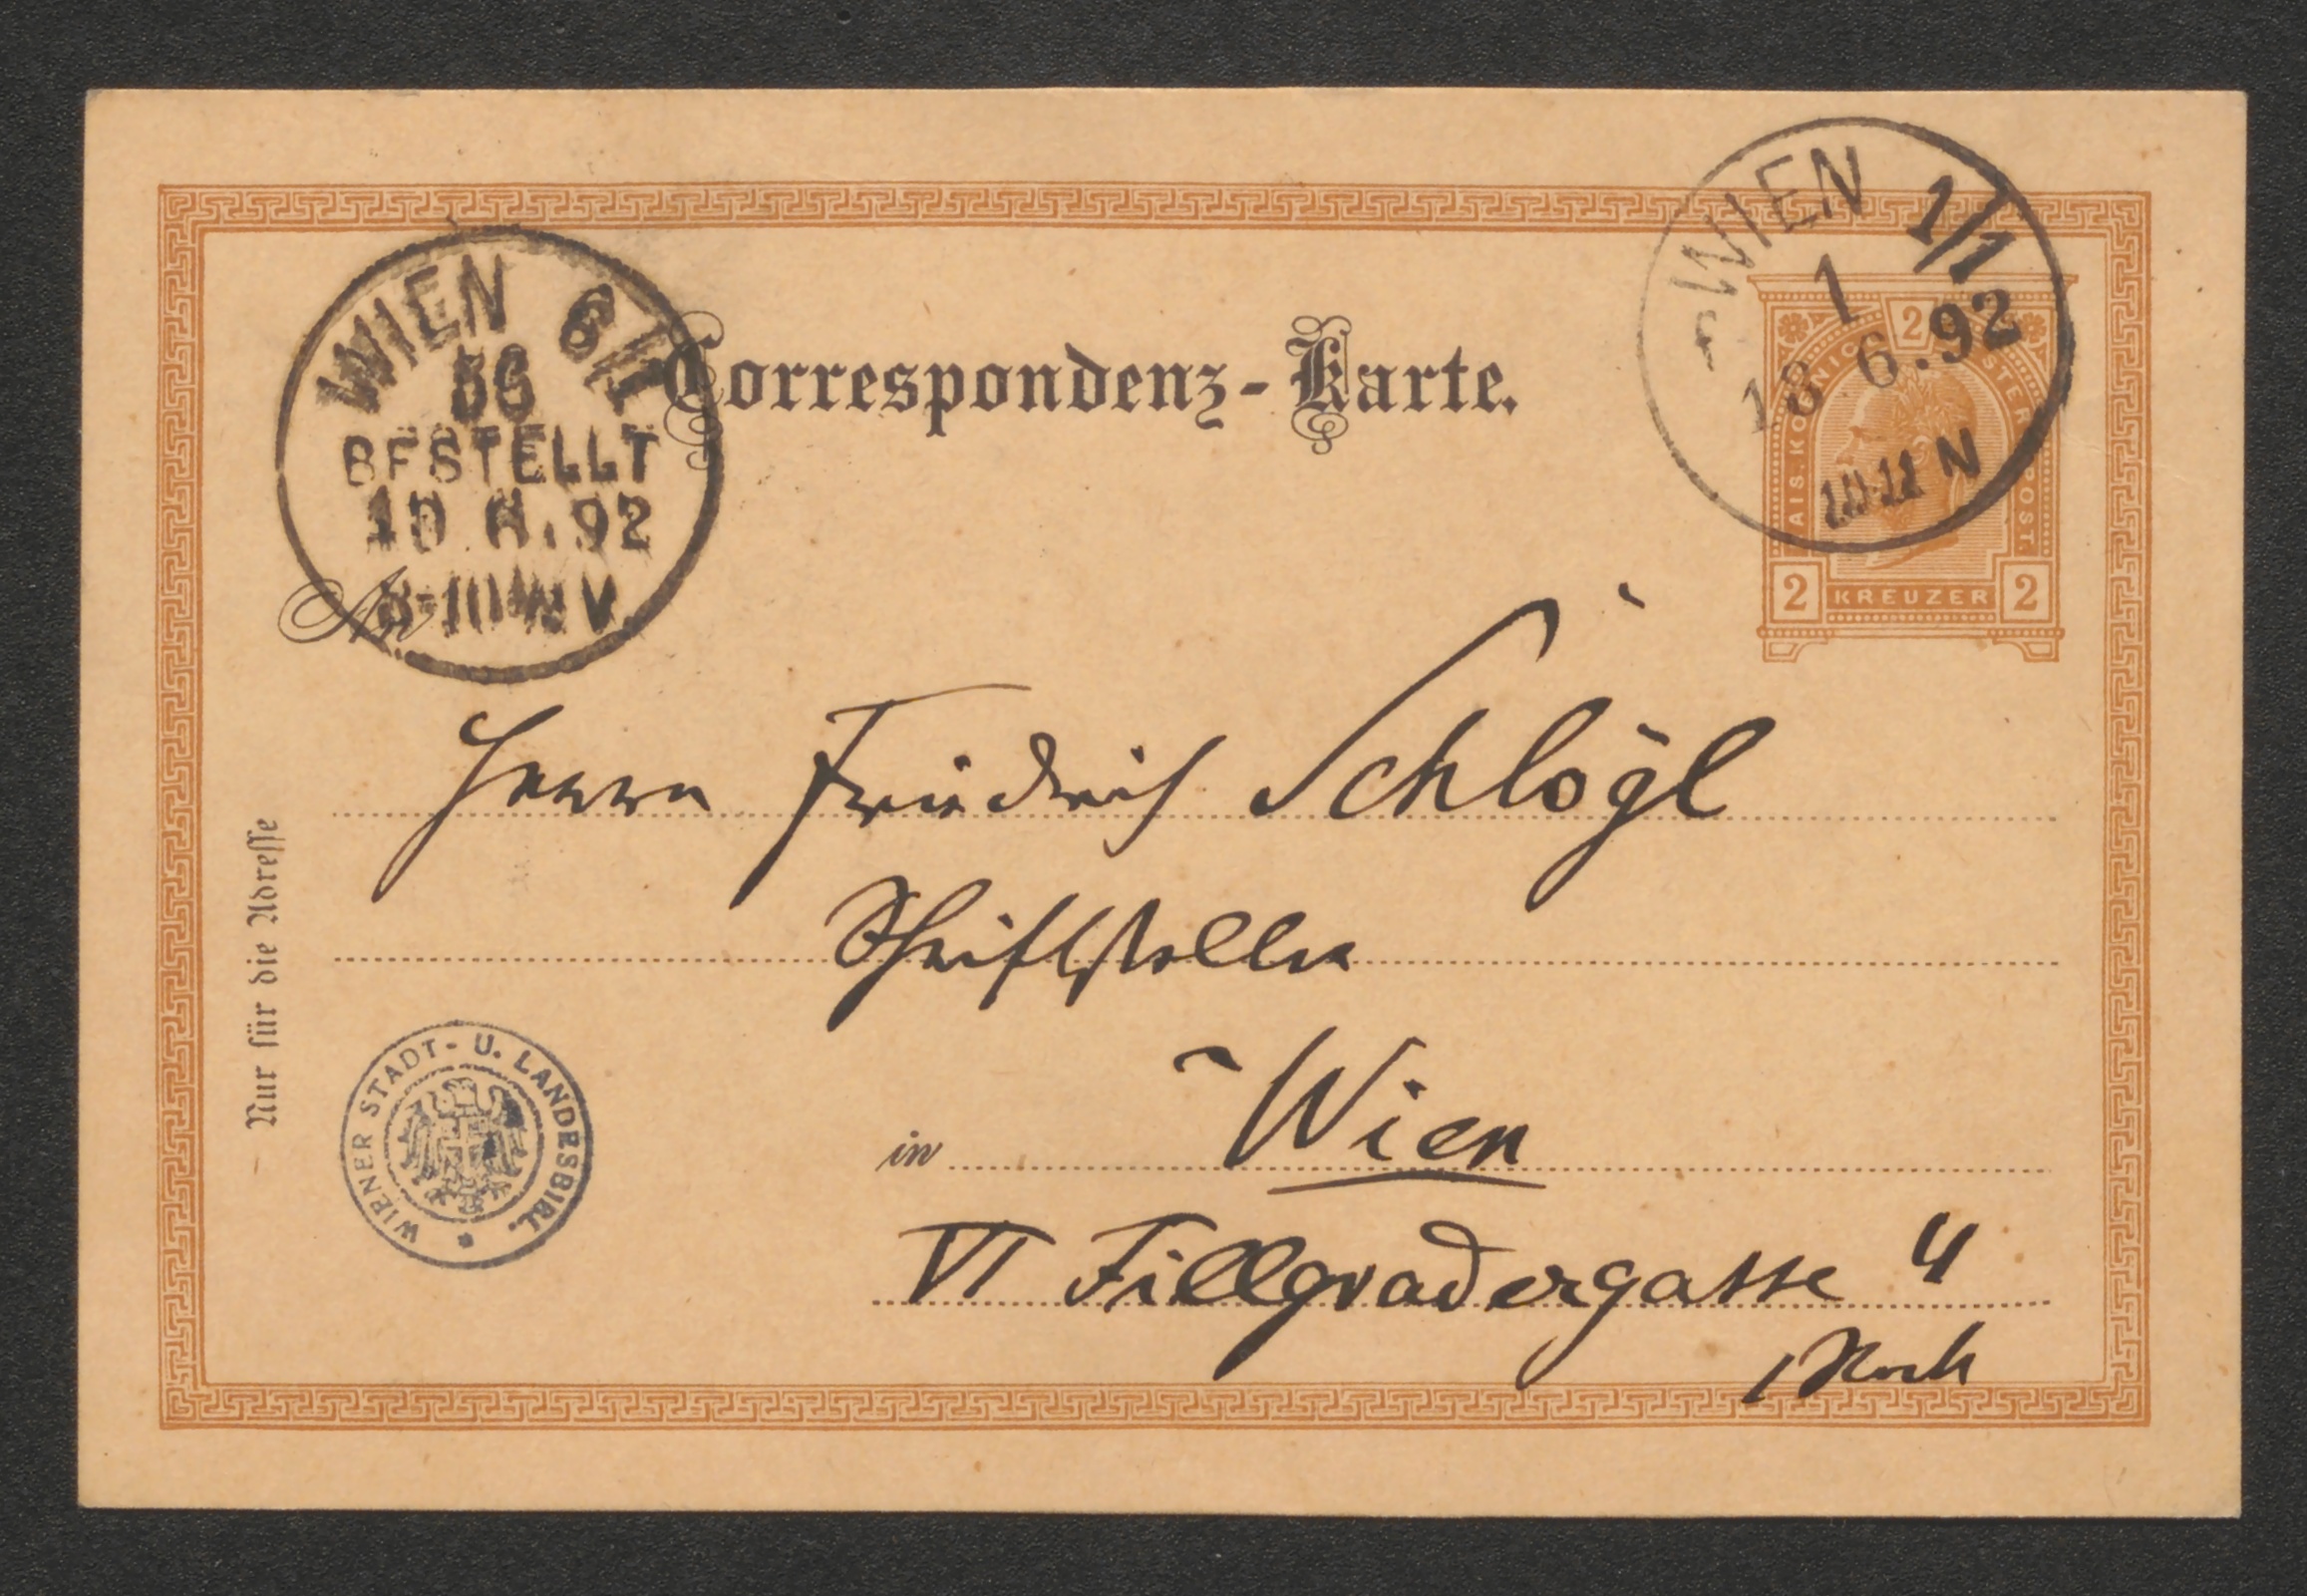 WIEN 1/1
1
18 6.92
10-11 N
2
KAIS. KÖNIGL. ÖSTERR. POST.
2 KREUZER 2
WIEN 6/1
BESTELLT
.92
V.
Correspondenz-Karte.
An
Herrn Friedrich Schlögl
Schriftsteller
in Wien
VI Fillgradergasse 4
Nur für die Adresse
WIENER STADT- U. LANDESBIBL.